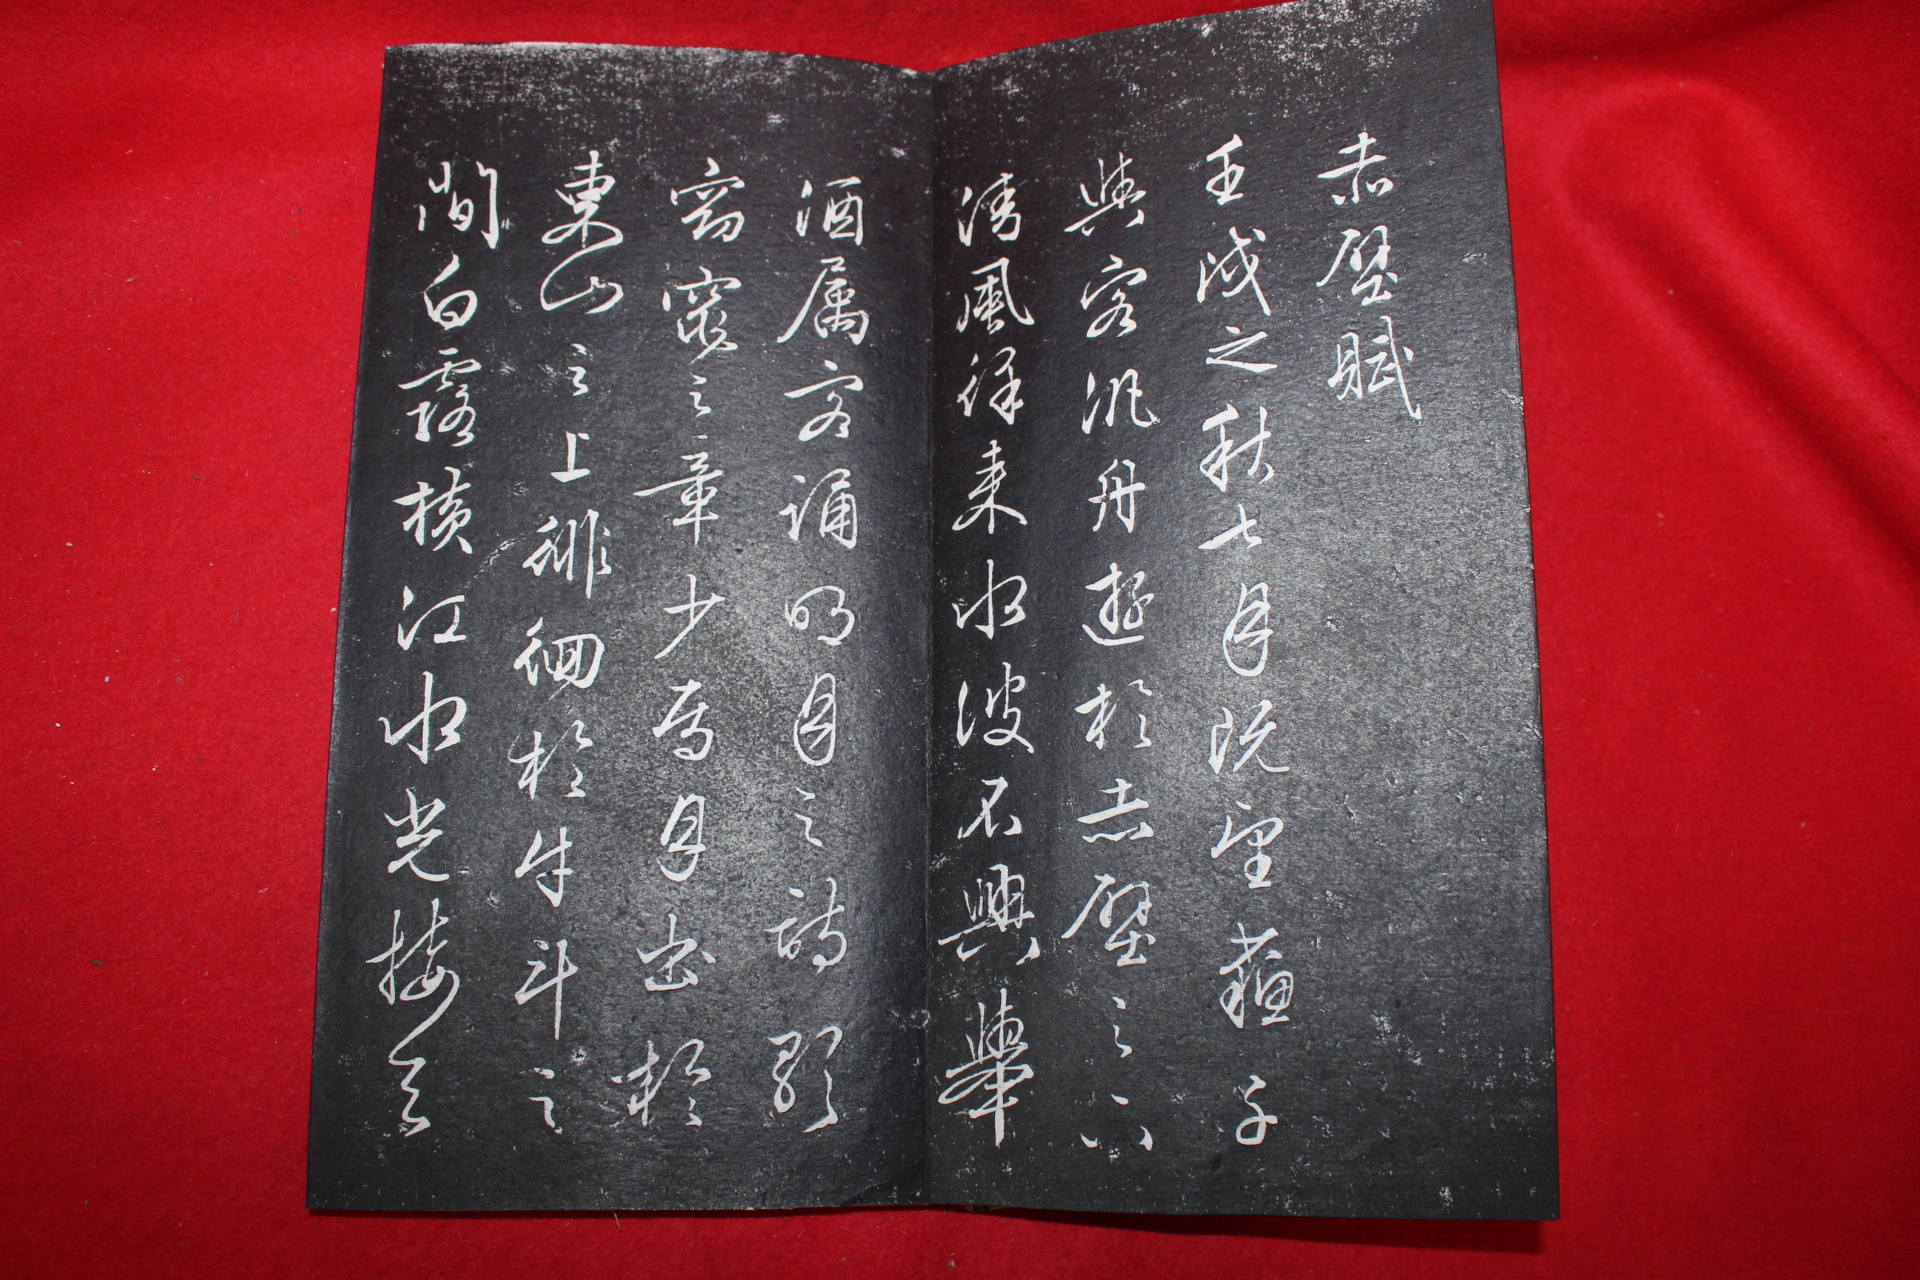 赤壁賦
壬戌之秋七月既望蘇子
與客汎舟遊於赤壁之下
清風徐来水波不興舉
酒属客誦明月之詩歌
窈窕之章少焉月出於
東山之上徘徊於斗牛之
間白露横江水光接天